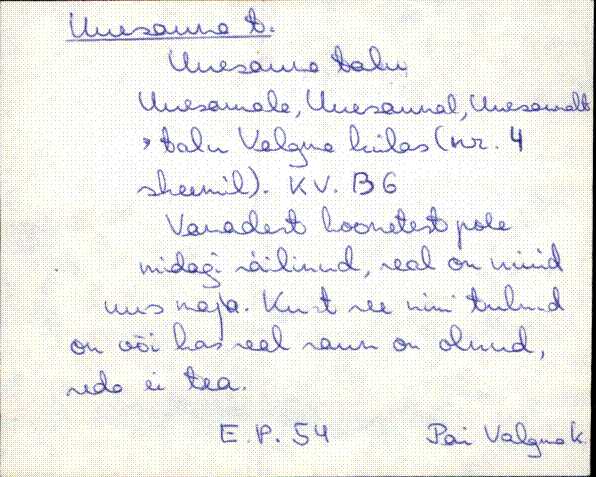 Uuesauna t.
Uuesauna talu
Uuesaunale, Uuesaunal, Uuesaunalt
> talu Valgma külas (nr. 4
skeemil). KV. B6
Vanadest hoonetest pole
midagi säilinud, seal on nüüd
uus maja. Kust see nimi tulnud
on või kas seal saun on olnud,
seda ei tea.
E.P. 54 Pai Valgma k.